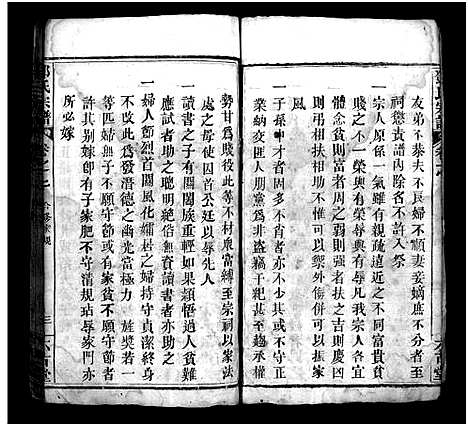 友弟不恭夫不良婦不順妻妾嫡庶不分者至
祠懲責譜內除名不許入祭
一宗人原係一氣雖有親疏遠近之不同富貴貧
賤之不一榮與有榮辱與有辱凡我族人各宜
體念貧則富者周之弱則強者扶之吉則慶凶
則弔相扶相助不但可以禦外侮併可以裕後
一子孫中才者固多不肖者亦有倘不守本
業納交匪人朋黨為非盜竊干犯甚至趨承權
勢甘為賤役此等不材衆當縛至宗祠以家法
處之毋使囚首公廷以辱先人
一讀書之子有關闔族重輕如果穎悟過人貧難
應試者助之聰明絕倫無資讀書者亦助之
一婦人節烈首關風化孀居之婦持守貞潔終身
匹婦尚為發潛德之幽光當極力 旌獎若一
許其別嫁即有子家肥不守清規玷辱家門亦
所必嫁
鄧氏宗譜
卷之
三
六首堂